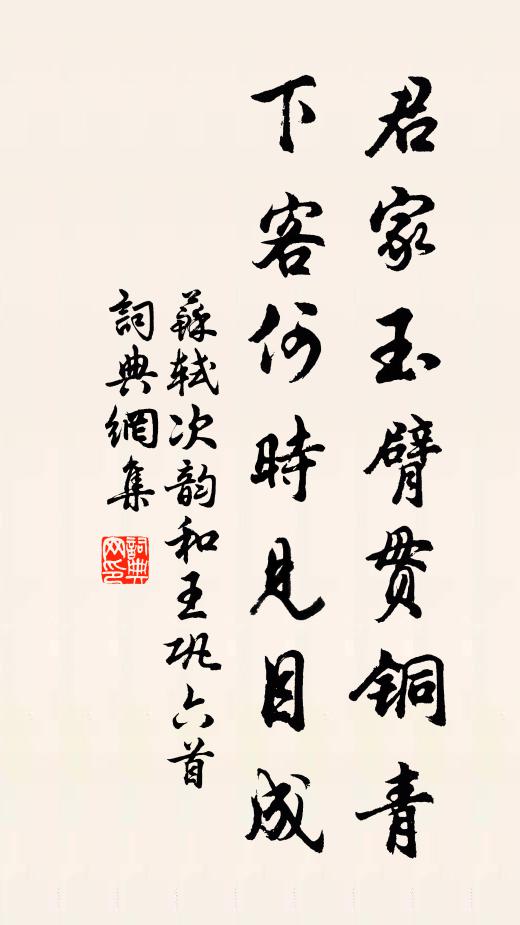 君家玉臂贯铜青
下客何時見目成
蘇軾次韵和王巩六首
詞典網集
詞典网印